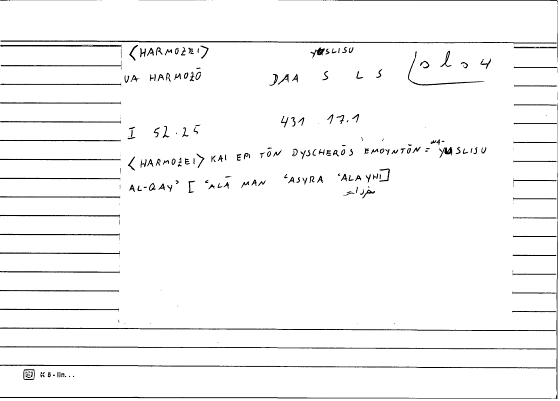 ⟨HARMOZEI⟩ YASLISU
UA HARMOZŌ DAA S L S
I 52.25 431 17.1
⟨HARMOZEI⟩ KAI EPI TŌN DYSCHERŌS EMOYNTŌN = WA-YASLISU
AL-QAY' [ 'ALĀ MAN 'ASYRA 'ALAYHI]